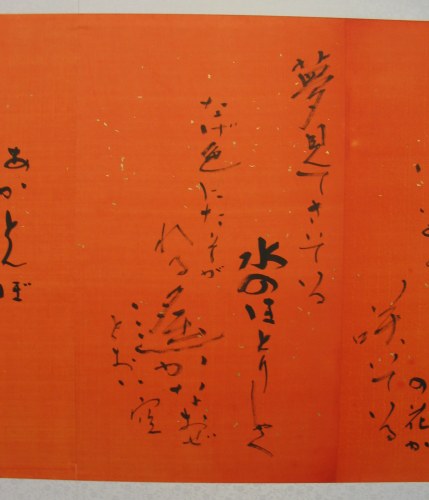 の花が
咲いている
夢見てさいている
水のほとりしゃく
なげ色にたそが
れる
遥かなおぜ
とおい空
あかとんぼ